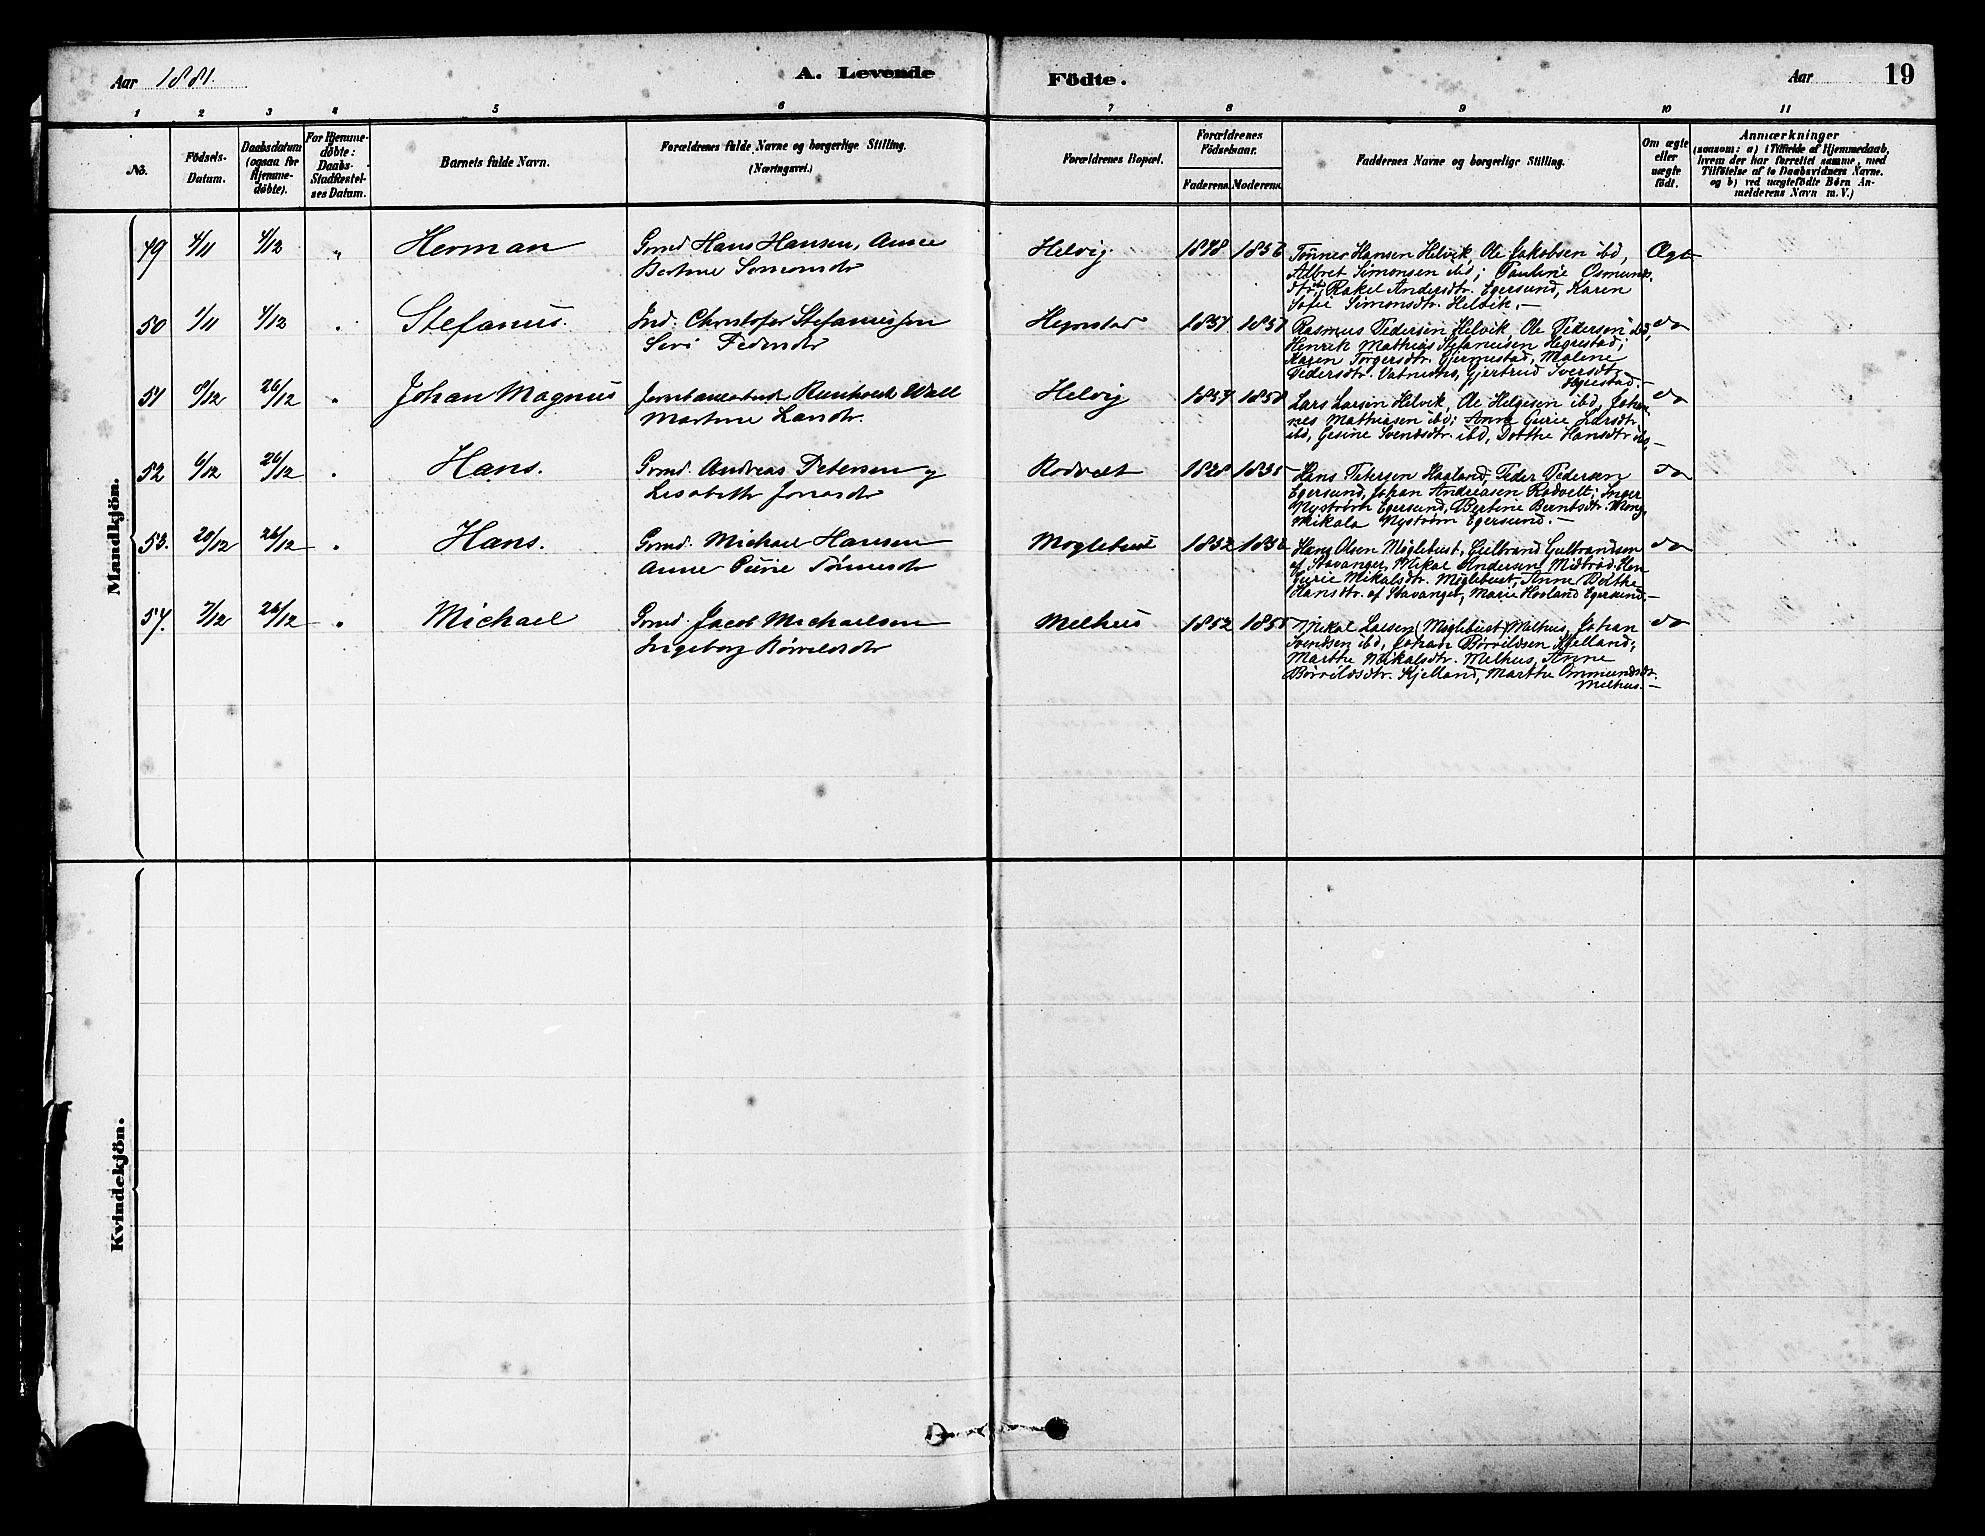 Aar 1881.
A. Levende Födte.
Aar 19
1 2 3 4 5 6 7 8 9 10 11
No.
Födsels-Datum.
Daabsdatum (ogsaa for Hjemme-döbte).
For Hjemme-döbte: Daabs-Stadfæstelses Datum.
Barnets fulde Navn.
Forældrenes fulde Navne og borgerlige Stilling.
(Næringsvei.)
Forældrenes Bopæl.
Forældrenes Födselsaar.
Faderens. Moderens.
Faddernes Navne og borgerlige Stilling.
Om ægte eller uægte födt.
Anmærkninger
(saasom: a) i Tilfælde af Hjemmedaab,
hvem der har forrettet samme, med
Tilföielse af to Daabsvidners Navne.
og b) ved uægtefödte Börn An-
melderens Navn m. V.)
Mandkjön.
49 4/11 4/12 " Herman
Grmd Hans Hansen, Anne
Bertine Simonsdr
Helvig 1848 1856
Tönnes Hansen Helvik, Ole Jakobsen ibd,
Albret Simonsen ibd; Pauline Osmunds-
dtr., Rakel Andersdtr. Egersund, Karen
Sofie Simonsdtr. Helvik.-
Ægte
50 1/11 4/12 " Stefanus.
Ind. Christofer Stefanussen
Siri Pedersdr
Hegrestad 1857
Rasmus Pedersen Helvik, Ole Pedersen ibd,
Henrik Mathias Stefansen Hegrestad;
Karen Torgersdtr. Gjermestad, Malene
Pedersdtr. Gjertrud Iversdtr
Hegrestad.-
do
51 8/12 26/12 " Johan Magnus
Wall
Martine Larsdr.
Helvig
Lars Larsen Helvik, Ole Helgesen ibd, Johan-
nes Mathiasen ibd; Anna Gurie Larsdtr
ibd, Gesine Svendsdtr. ibd, Dorthe Hansdtr ibd-
do
52 6/12 26/12 " Hans.
Grmd. Andreas Petersen og
Lisabeth Jonasdr
Rodvelt 1838
Hans Petersen Haaland, Peder Pedersen
Egersund, Johan Andreasen Rodvelt; Inger
Nyström Egersund, Bertine Berntsdtr. Mong,
Mikala Nyström Egersund.-
do
53. 20/12 26/12 " Hans.
Grmd. Michael Hansen
Anne Gurie Tönnesdr
Moglebust 1832 1836
Hans Olsen Möglebust, Gulbrand Gulbrandsen
af Stavanger, Mikal Andersen Midbrod.
Gurie Mikalsdtr. Möglebust, Anne Dorthe
Hansdtr. af Stavanger, Marie Hovland Egersund.-
do
54. 7/12 26/12 " Michael
Grmd. Jacob Michaelsen
Ingeborg Börrildsdr
Melhus 1852 1855
Mikal Larsen (Möglebust) Melhus, Johan
Svendsen ibd, Johan Börrildsen Kjelland;
Marthe Mikalsdtr. Melhus, Anne
Börrildsdtr. Kjelland, Marthe Ommundsdtr.
Melhus.-
do
Kvindekjön.